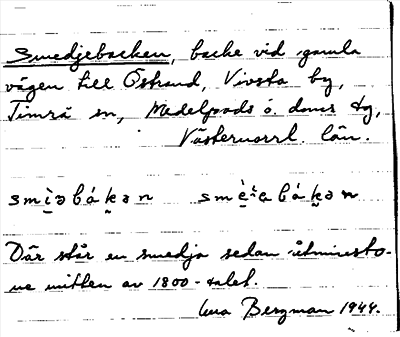 Smedjebacken, backe vid gamla
vägen till Östrand, Vivsta by,
Timrå sn, Medelpads ö. doms tg,
Västernorrl. län.
smi̯əbákən smèi̯ebákən
Där står en smedja sedan åtminsto-
ne mitten av 1800-talet.
Bergman 1944.